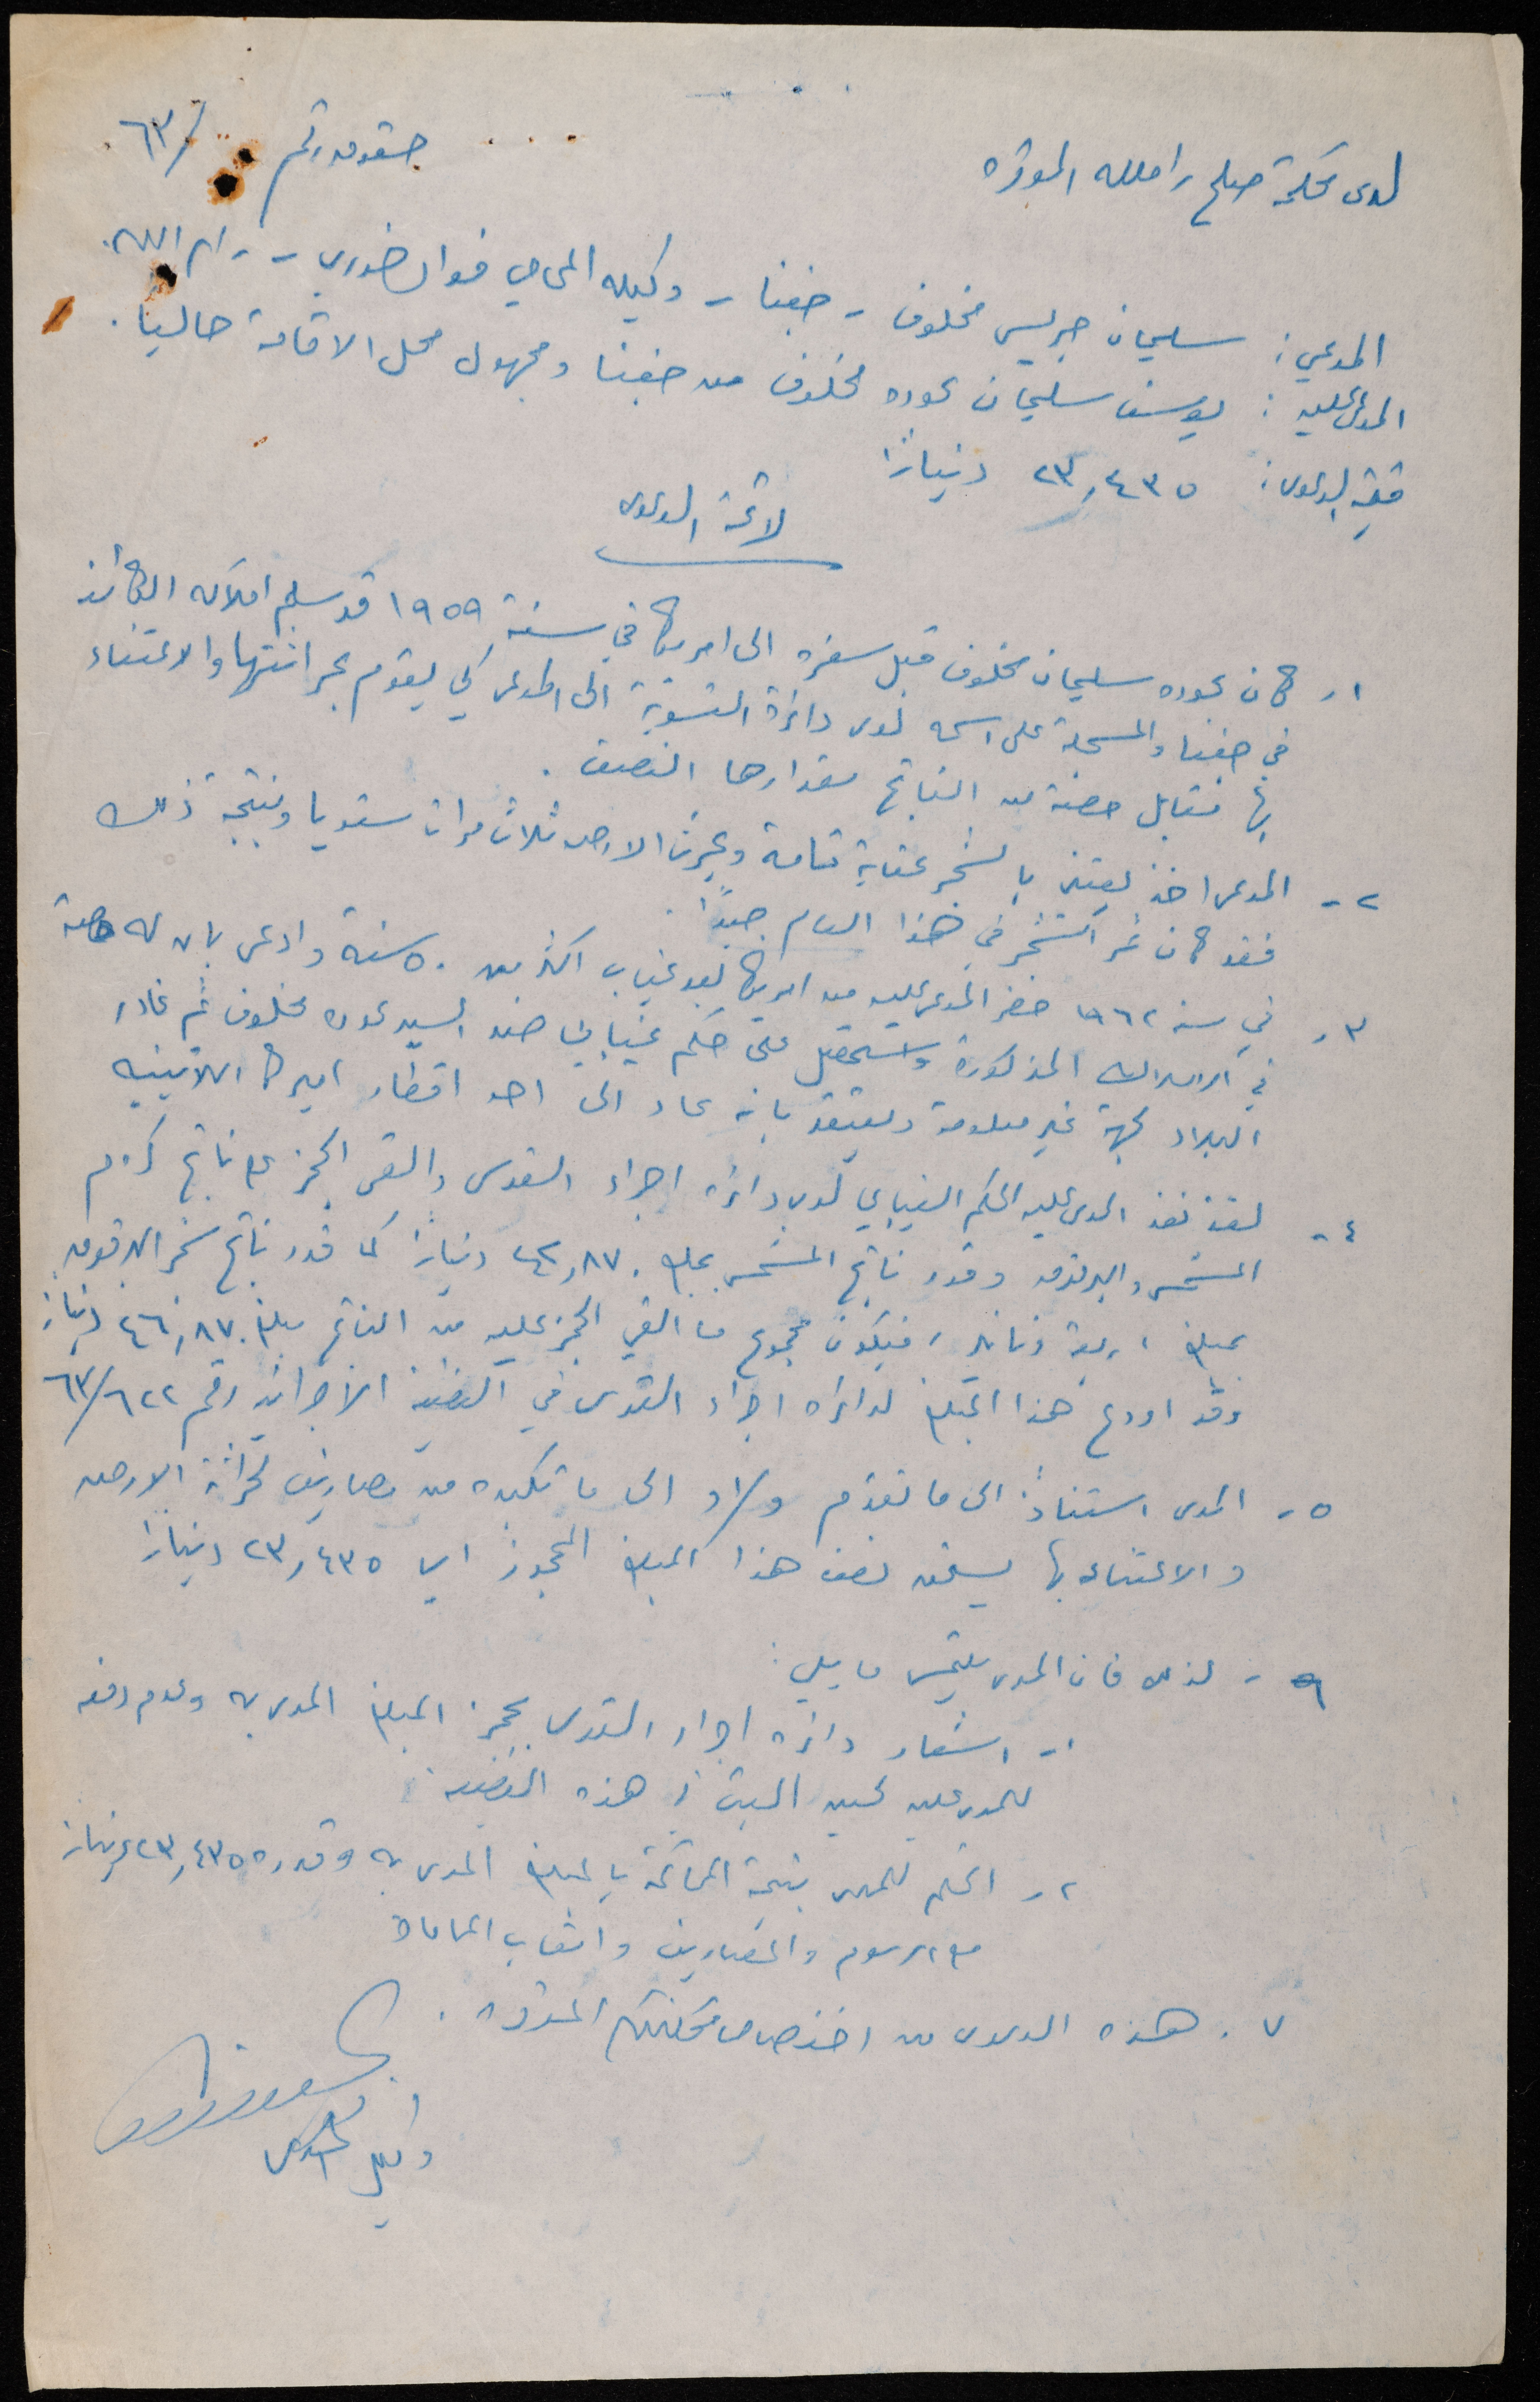 حقوق رقم /٦٣
لدى محكمة صلح رام الله الموقره
المدعي: سليمان جريس مخلوف - جفنا - وكيله المحامي فؤاد خوري - رام الله.
المدعى عليه: يوسف سليمان عوده مخلوف من جفنا ومجهول محل الاقامة حاليا.
قيمة الدعوى: ٢٣,٤٣٥ دينارًا
لائحة الدعوى
١- كان عوده سليمان مخلوف قبل سفره الى امريكا في سنة ١٩٥٩ قد سلم املاكه الكائنه
في جفنا والمسجلة على اسمه لدى دائرة التسوية الى المدعي كي يقوم بحراثتها والاعتناء
بها مقابل حصة من الناتج مقدارها النصف.
٢- المدعي اخذ يعتني بالشجر عناية تامة ويحرث الارض ثلاث مرات سنويا ونتيجة ذلك
فقد كان ثمر الشجر في هذا العام جيدًا.
٣- في سنة ١٩٦٢ حضر المدعى عليه من امريكا بعد غياب اكثر من ٥٠ سنه وادعى بان له حصة
في الاملاك المذكورة واستحصل على حكم غيابي ضد السيد عوده مخلوف ثم غادر
البلاد لجهة غير معلومة ويعتقد بانه عاد الى احد اقطار اميركا اللاتينيه
٤- لقد نفذ المدعى عليه الحكم الغيابي لدى دائرة اجراء القدس والقى الحجز على ناتج كروم
المشمش والبرقوق وقدر ناتج المشمش بمبلغ ٤٢,٨٧٠ دينارًا كما قدر ناتج شجر البرقوق
بمبلغ اربعة دنانير، فيكون مجموع ما القي الحجز عليه من الناتج مبلغ ٤٦,٨٧٠ دينارًا
وقد اودع هذا المبلغ لدائرة اجراء القدس في القضية الاجرائية رقم ٦٣/٦٢٢
٥- المدعي استنادًا الى ما تقدم و/او الى ما تكبده من مصاريف لحراثة الارض
والاعتناء بها يستحق نصف هذا المبلغ المحجوز اي ٢٣,٤٣٥ دينارًا
٦- لذلك فان المدعي يلتمس ما يلي:
١- اشعار دائرة اجراء القدس بحجز المبلغ المدعى به وعدم دفعه
للمدعى عليه لحين البت في هذه القضية.
٢- الحكم للمدعي بنتيجة المحاكمة بالمبلغ المدعى به وقدره ٢٣,٤٣٥ دينارًا
مع الرسوم والمصاريف واتعاب المحاماة
٧. هذه الدعوى من اختصاص محكمتكم الموقره.
وكيل المدعي